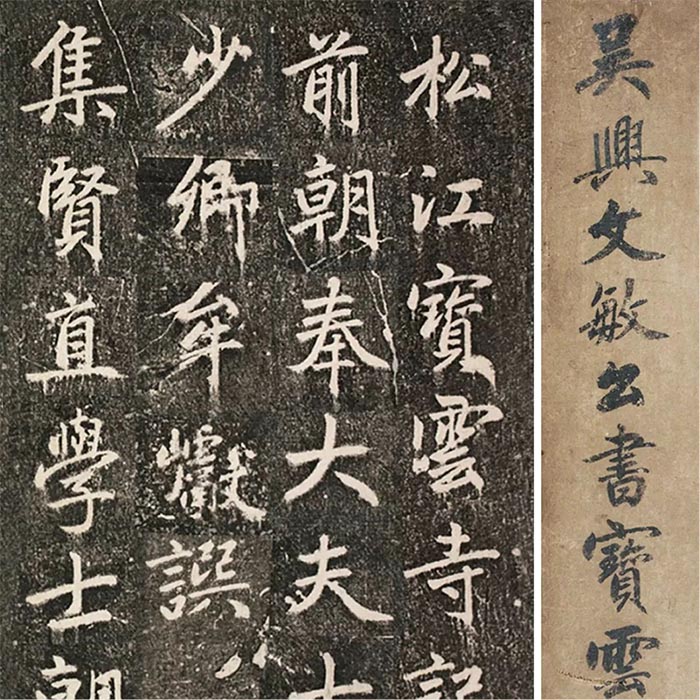 吳興文敏公書寶雲
松江寶雲寺記
前朝奉大夫
少卿牟巘譔
集賢直學士朝